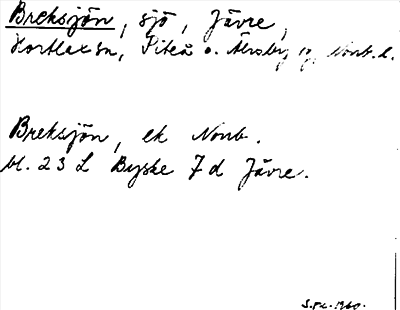 Breksjön, sjö, Jävre,
Hortlax sn, Piteå o. Älvsby tg, Norrb. l.
Breksjön, ek Norrb.
bl. 23 L Byske 7 d Jävre.
1960.